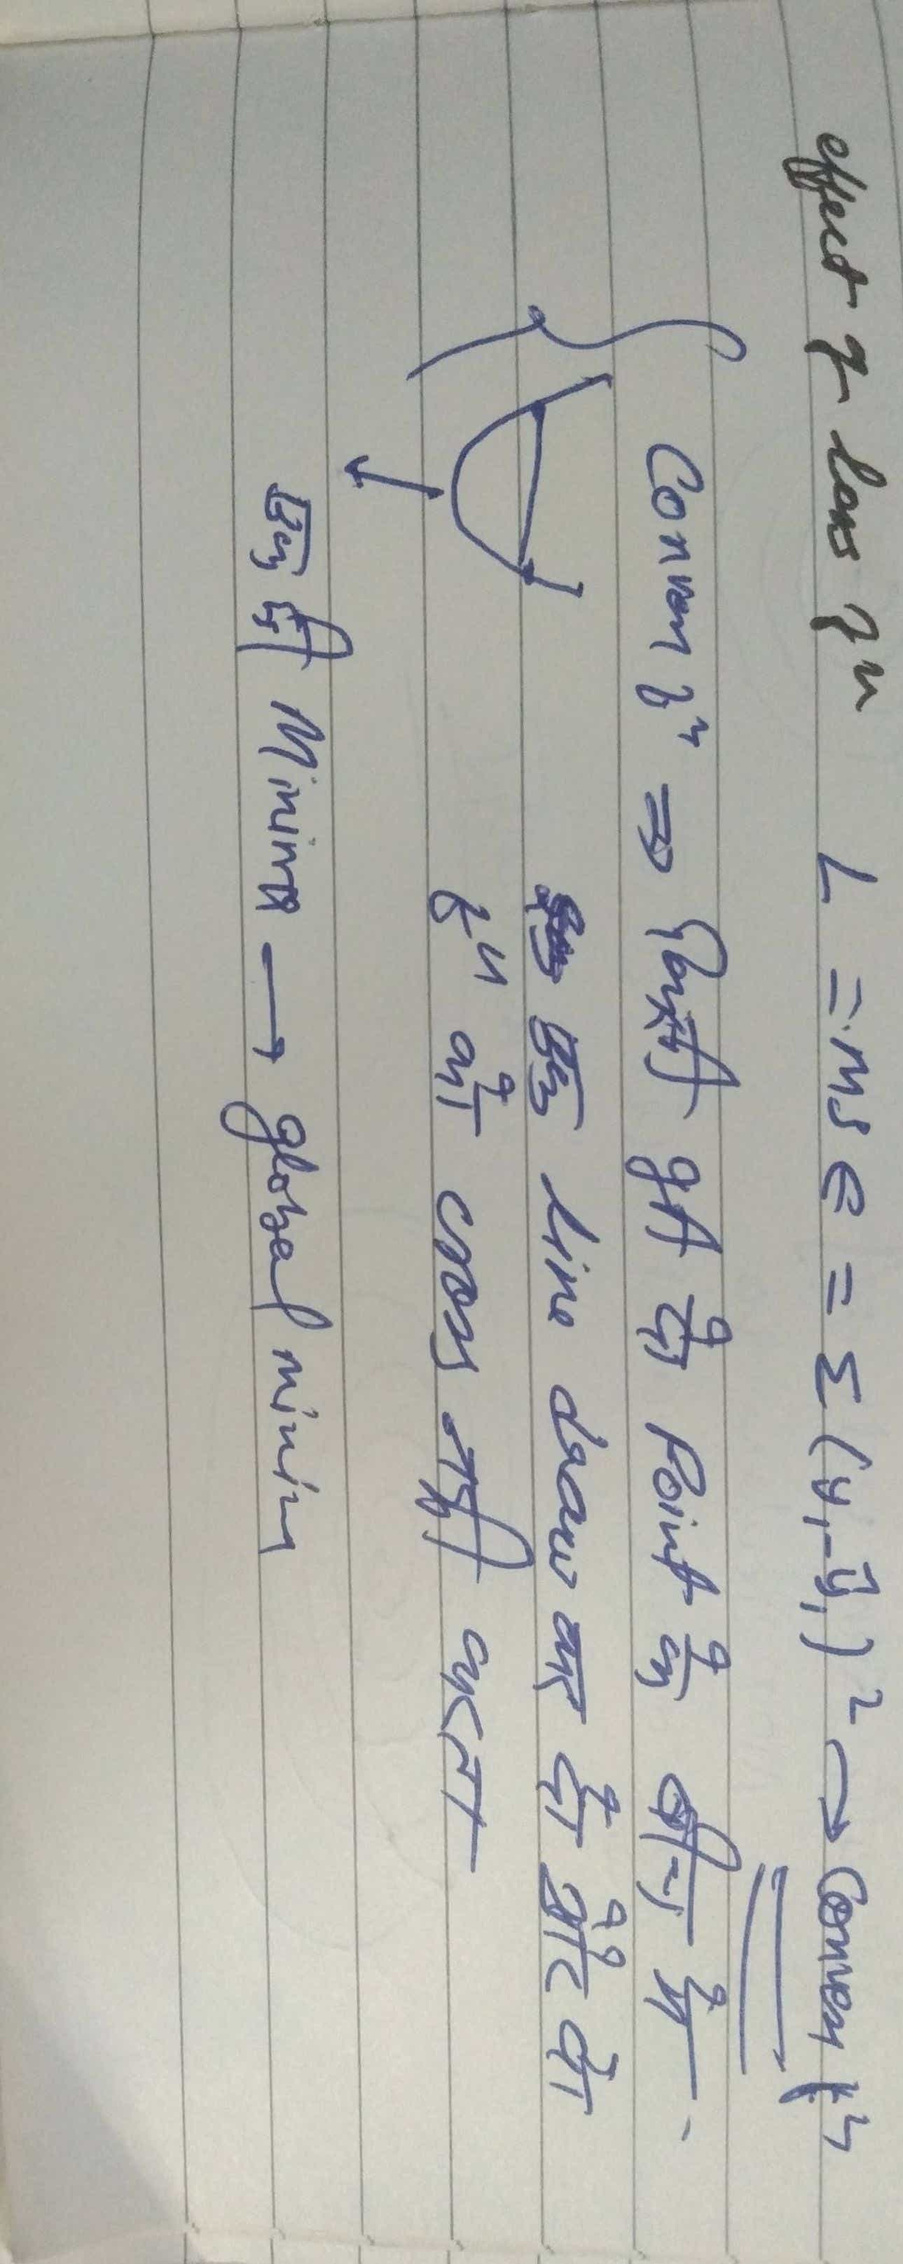 effect of loss fⁿ L = MSE = Σ(yᵢ-ŷᵢ)² → Convex fⁿ
Convex fⁿ ⇒ किसी भी दो Point के बीच में
एक line draw कर दो और वो
fⁿ को cross नहीं करता
एक ही Minima → global minim